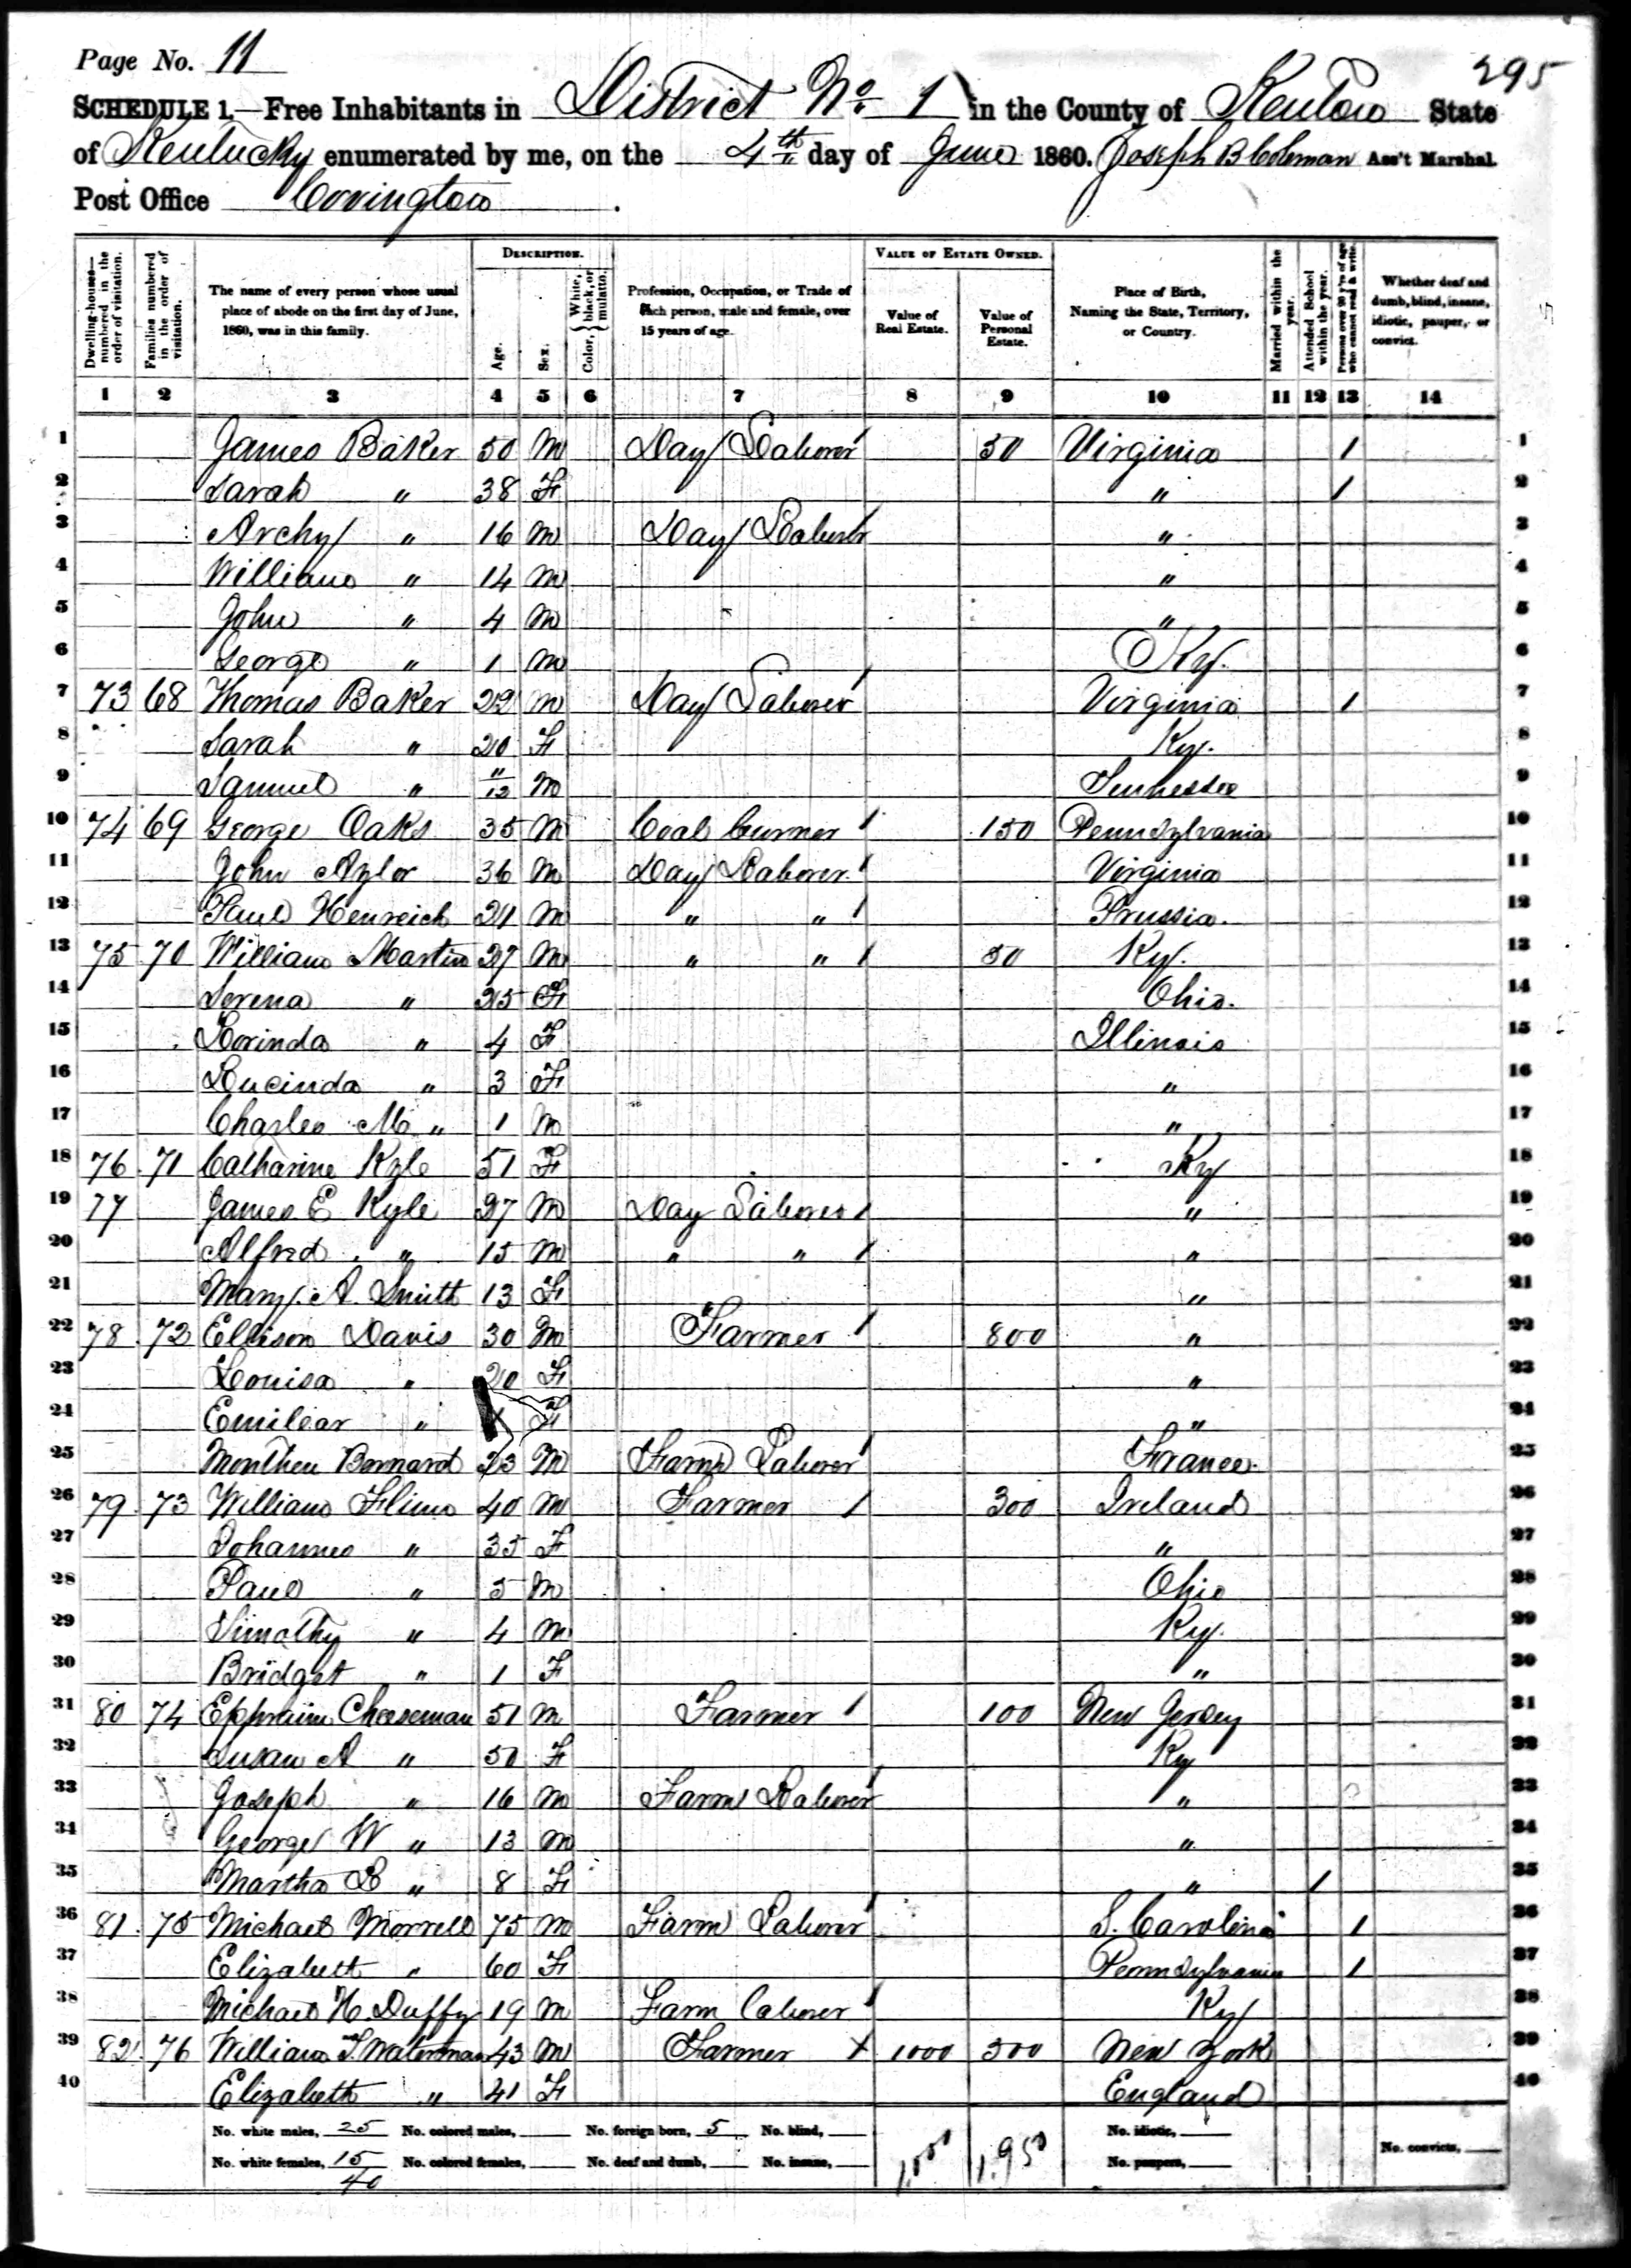 Page No. 11
295
SCHEDULE 1.—Free Inhabitants in District No 1 in the County of Kenton State
of Kentucky enumerated by me, on the 4th day of June 1860. Joseph B Coleman Ass't Marshal.
Post Office Covington.
DESCRIPTION. VALUE OF ESTATE OWNED.
Dwelling-houses—numbered in the order of visitation. Families numbered in the order of visitation. The name of every person whose usual place of abode on the first day of June, 1860, was in this family. Age. Sex. Color, { White, black, or mulatto. Profession, Occupation, or Trade of each person, male and female, over 15 years of age. Value of Real Estate. Value of Personal Estate. Place of Birth, Naming the State, Territory, or Country. Married within the year. Attended School within the year. Persons over 20 y'rs of age who cannot read & write. Whether deaf and dumb, blind, insane, idiotic, pauper, or convict.
1 2 3 4 5 6 7 8 9 10 11 12 13 14
1 James Baker 50 M Day Laborer 50 Virginia 1 1
2 Sarah " 38 F " 1 2
3 Archy " 16 M Day Laborer " 3
4 William " 14 M " 4
5 John " 4 M " 5
6 George " 1 M Ky. 6
7 73 68 Thomas Baker 22 M Day Laborer Virginia 1 7
8 Sarah " 20 F Ky. 8
9 Samuel " 11/12 M Tennessee 9
10 74 69 George Oaks 35 M Coal 150 Pennsylvania 10
11 John Aylor 36 M Day Laborer Virginia 11
12 Paul Henreich 21 M " " Prussia. 12
13 75 70 William Martin 27 M " " 50 Ky. 13
14 Serena " 25 F Ohio. 14
15 Lorinda " 4 F Illinois 15
16 Lucinda " 3 F " 16
17 Charles M " 1 M " 17
18 76 71 Catharine Kyle 51 F Ky 18
19 77 James E Kyle 27 M Day Laborer " 19
20 Alfred " 15 M " " " 20
21 Mary A. Smith 13 F " 21
22 78 72 Ellison Davis 30 M Farmer 800 " 22
23 Louisa " 20 F " 23
24 Emiliar " F " 24
25 Monthen Bernard 23 M Farm Laborer France. 25
26 79 73 William Flinn 40 M Farmer 300 Ireland 26
27 Johannes " 35 F " 27
28 Paul " 5 M Ohio 28
29 Timothy " 4 M Ky. 29
30 Bridget " 1 F " 30
31 80 74 Ephraim Cheeseman 51 M Farmer 100 New Jersey 31
32 Susan A " 50 F Ky 32
33 Joseph " 16 M Farm Laborer " 33
34 George W " 13 M " 34
35 Martha B " 8 F " 1 35
36 81 75 Michael Morrell 75 M Farm Laborer S. Carolina 1 36
37 Elizabeth " 60 F Pennsylvania 1 37
38 Michael H. Duffy 19 M Farm Laborer Ky 38
39 82 76 William T. Waterman 43 M Farmer X 1000 500 New York 39
40 Elizabeth " 41 F England 40
No. white males, 25 No. colored males, No. foreign born, 5 No. blind, 1,000 1,950 No. idiotic, No. convicts,
No. white females, 15 No. colored females, No. deaf and dumb, No. insane, No. paupers,
40